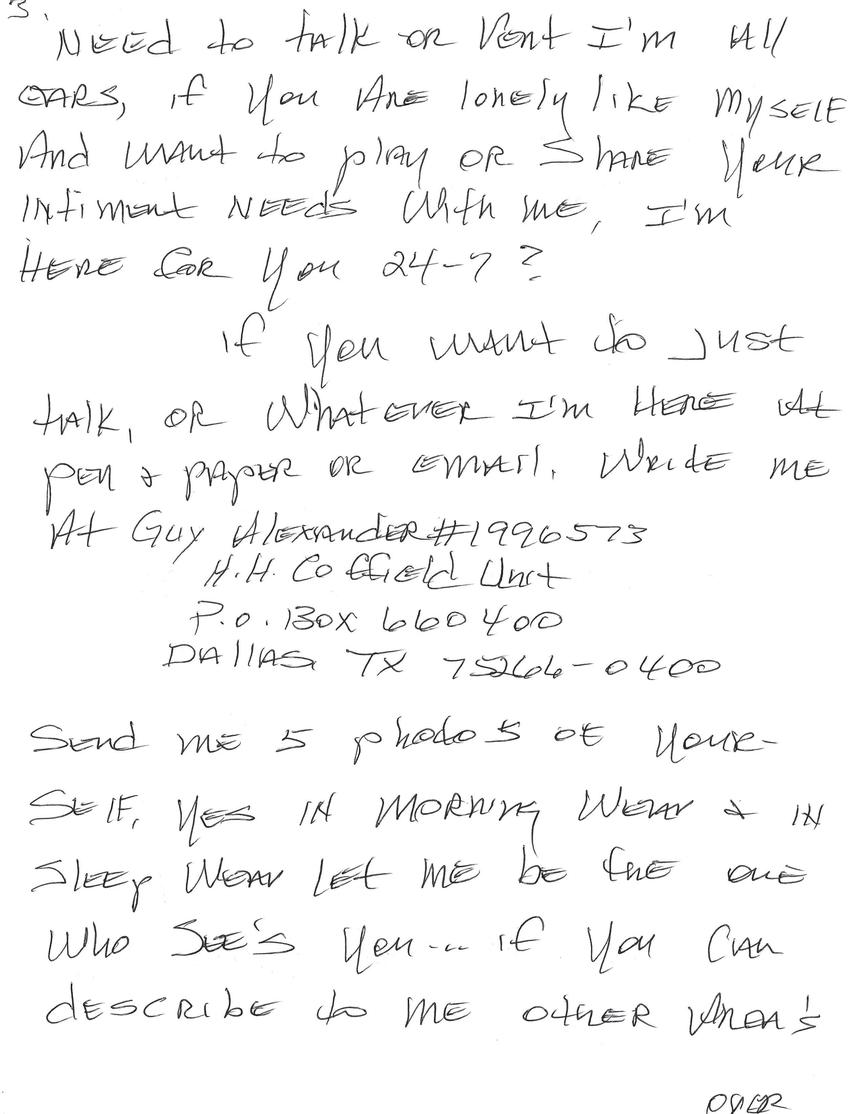 3.
NEED to talk OR Vent I'm All
EARS, if you ARE lonely like MYSELF
And want to play OR Share your
Intiment NEEDS With me, I'm
HERE for you 24-7?
if you want to Just
talk, OR Whatever I'm HERE At
pen & paper OR EMAIL. Write ME
At Guy Alexander #1996573
H.H. Coffield Unit
P.O. Box 660400
DAllAS TX 75266-0400
Send me 5 photo's of your-
SElf, yes IN MORNING WEAR & IN
SlEEp WEAR LET ME be the one
Who SEE's you... if you CAN
dEscribe to ME other AREA's
OVER